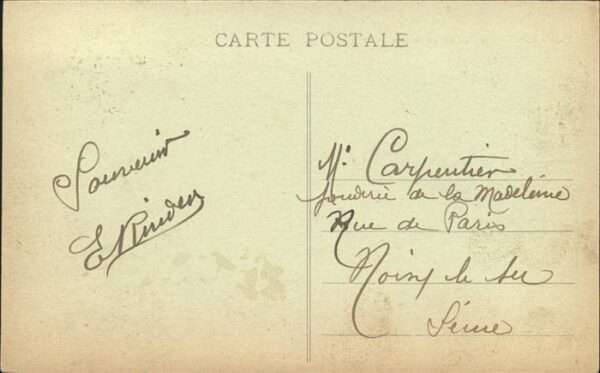 CARTE POSTALE
Souvenir
Mr Carpentier
fonderie de la Madeleine
Rue de Paris
Noisy le Sec
Seine